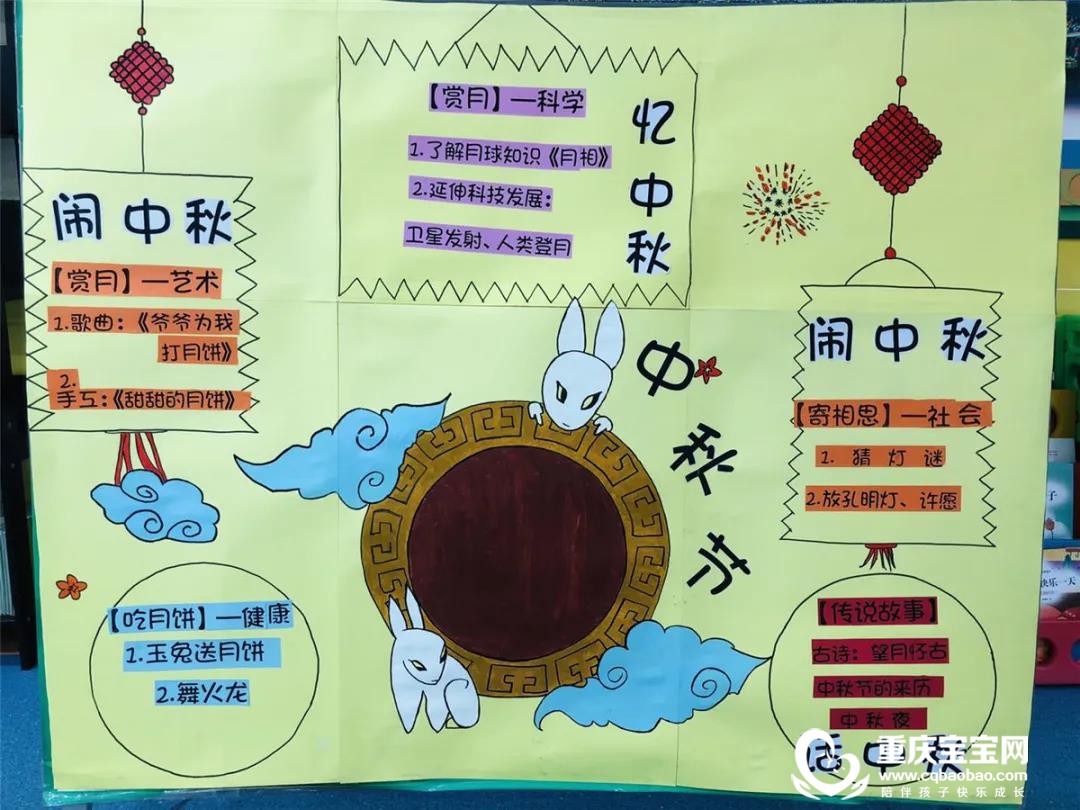 闹中秋
【赏月】—艺术
1.歌曲：《爷爷为我
打月饼》
2.
手互：《甜甜的月饼》
【赏月】—科学
1.了解月球知识《月相》
2.延伸科技发展：
卫星发射、人类登月
忆中秋
中秋节
闹中秋
【寄相思】—社会
1. 猜灯谜
2.放孔明灯、许愿
【吃月饼】—健康
1.玉兔送月饼
2.舞火龙
【传说故事】
古诗：望月怀古
中秋节的来历
中秋夜
中秋
重庆宝宝网
www.cqbaobao.com
陪伴孩子快乐成长
快乐一天